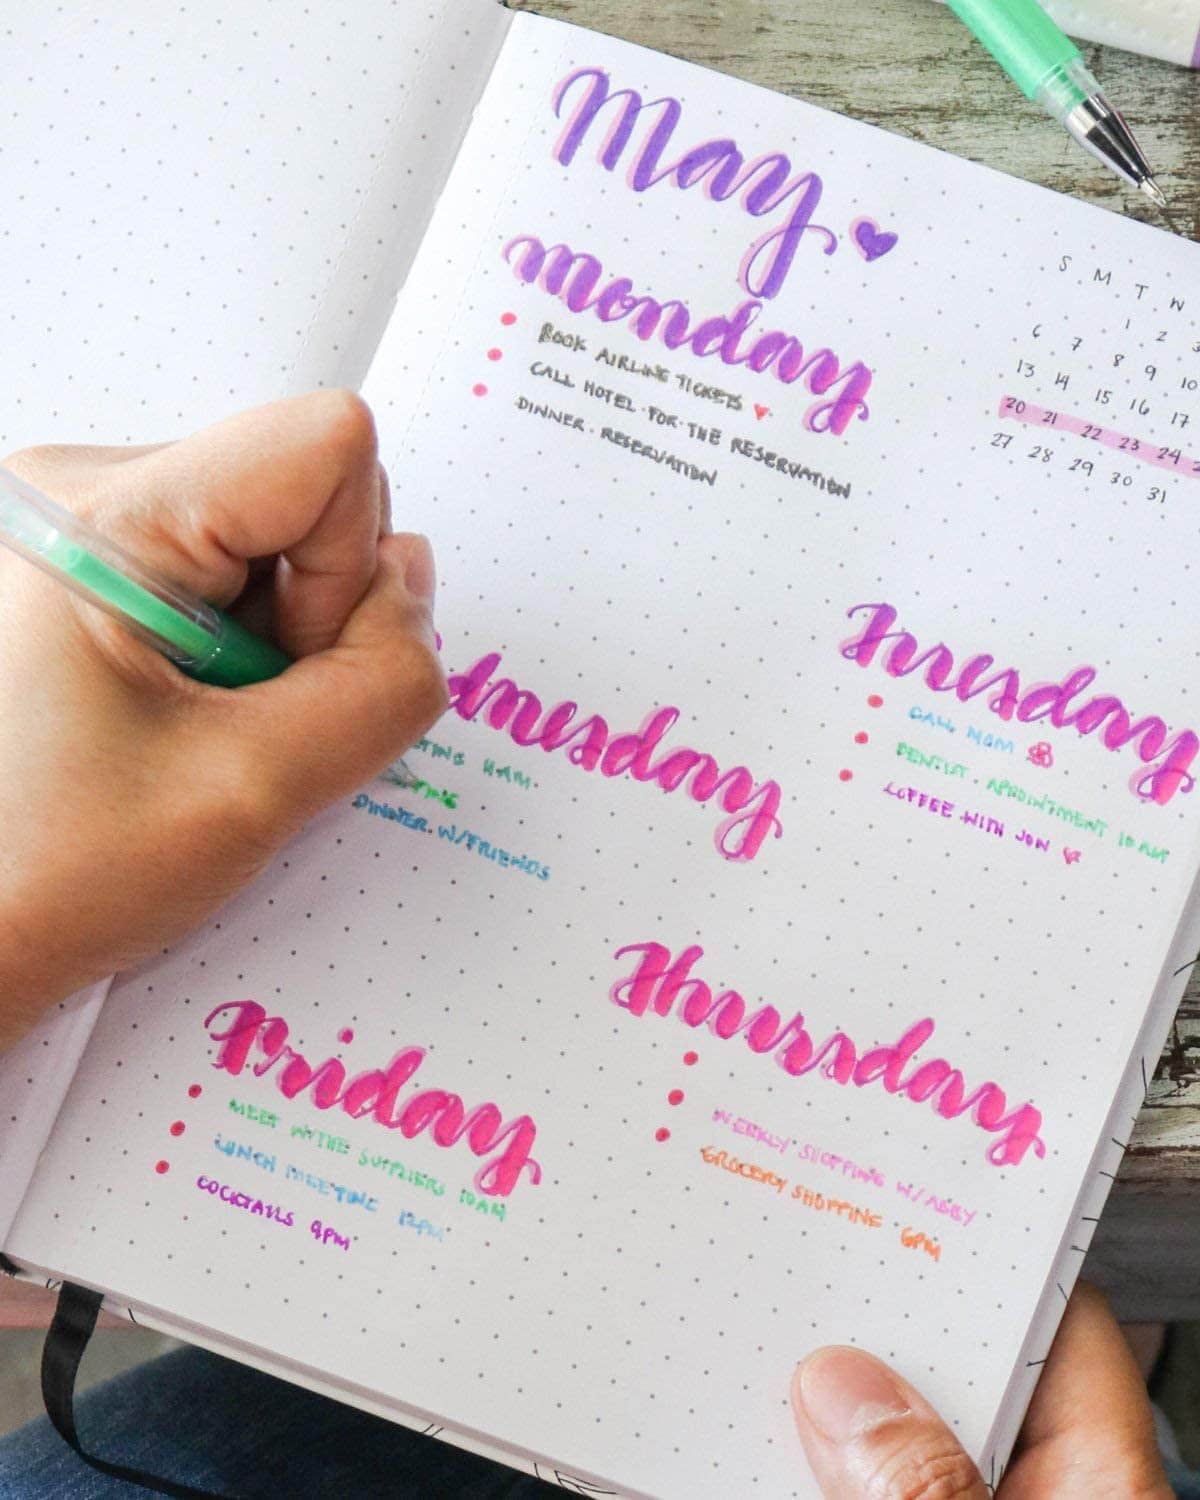 May
S M T W
1 2 3
6 7 8 9 10
13 14 15 16 17
20 21 22 23 24
27 28 29 30 31
Monday
BOOK AIRLINE TICKETS
CALL HOTEL FOR THE RESERVATION
DINNER RESERVATION
Tuesday
CALL MOM
DENTIST APPOINTMENT 10AM
COFFEE WITH JON
dnesday
DINNER W/FRIENDS
Thursday
WEEKLY SHOPPING W/ABBY
GROCERY SHOPPING 6PM
Friday
MEET W/THE SUPPLIERS 10AM
LUNCH MEETING 12PM
COCKTAILS 9PM